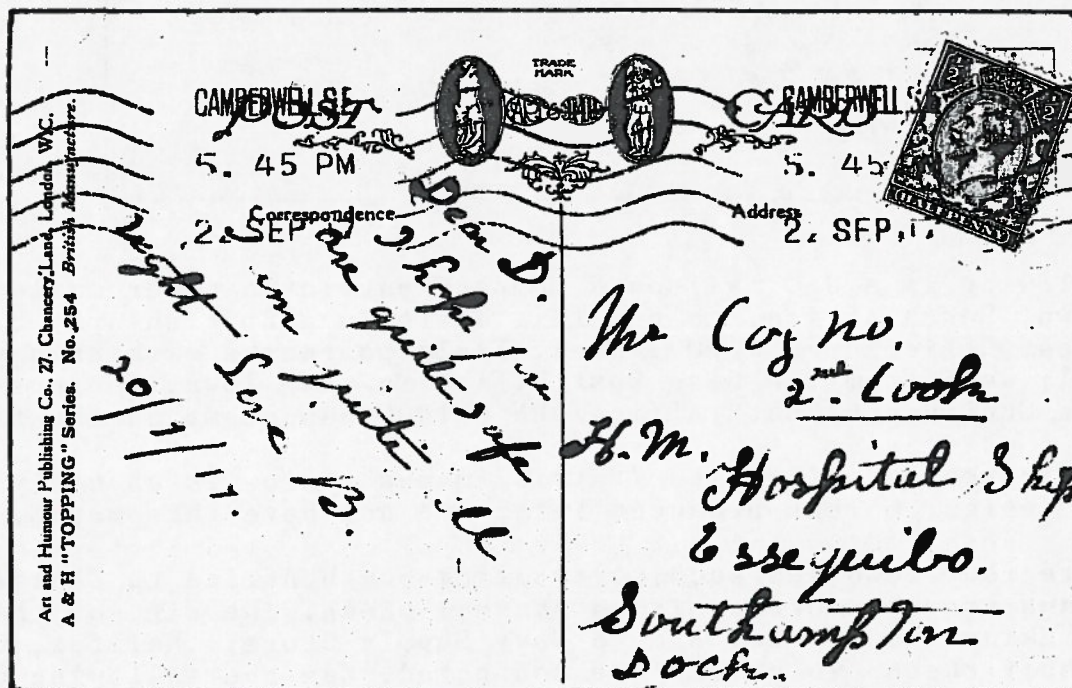 Art and Humour Publishing Co., 27, Chancery Land, London, W.C.
A & H "TOPPING" Series. No. 254 British Manufacture.
TRADE
MARK
POST CARD
CAMBERWELL S.E
5. 45 PM
22 SEP 17
CAMBERWELL S.
5. 45
22 SEP 17
Correspondence
Address
Dear D.
I hope you
are quite safe
im quite all
right. Love B.
20/9/17.
Mr Coy no.
2nd Cook
H.M.
Hospital Ship
Essequibo.
Southampton
Dock.